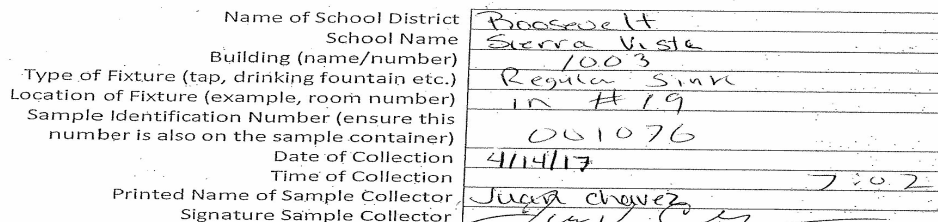 Name of School District Roosevelt
School Name Sierra Vista
Building (name/number) 1003
Type of Fixture (tap, drinking fountain etc.) Regular Sink
Location of Fixture (example, room number) in #19
Sample Identification Number (ensure this
number is also on the sample container) 001076
Date of Collection 4/14/17
Time of Collection 7:02
Printed Name of Sample Collector Juan Chavez
Signature Sample Collector